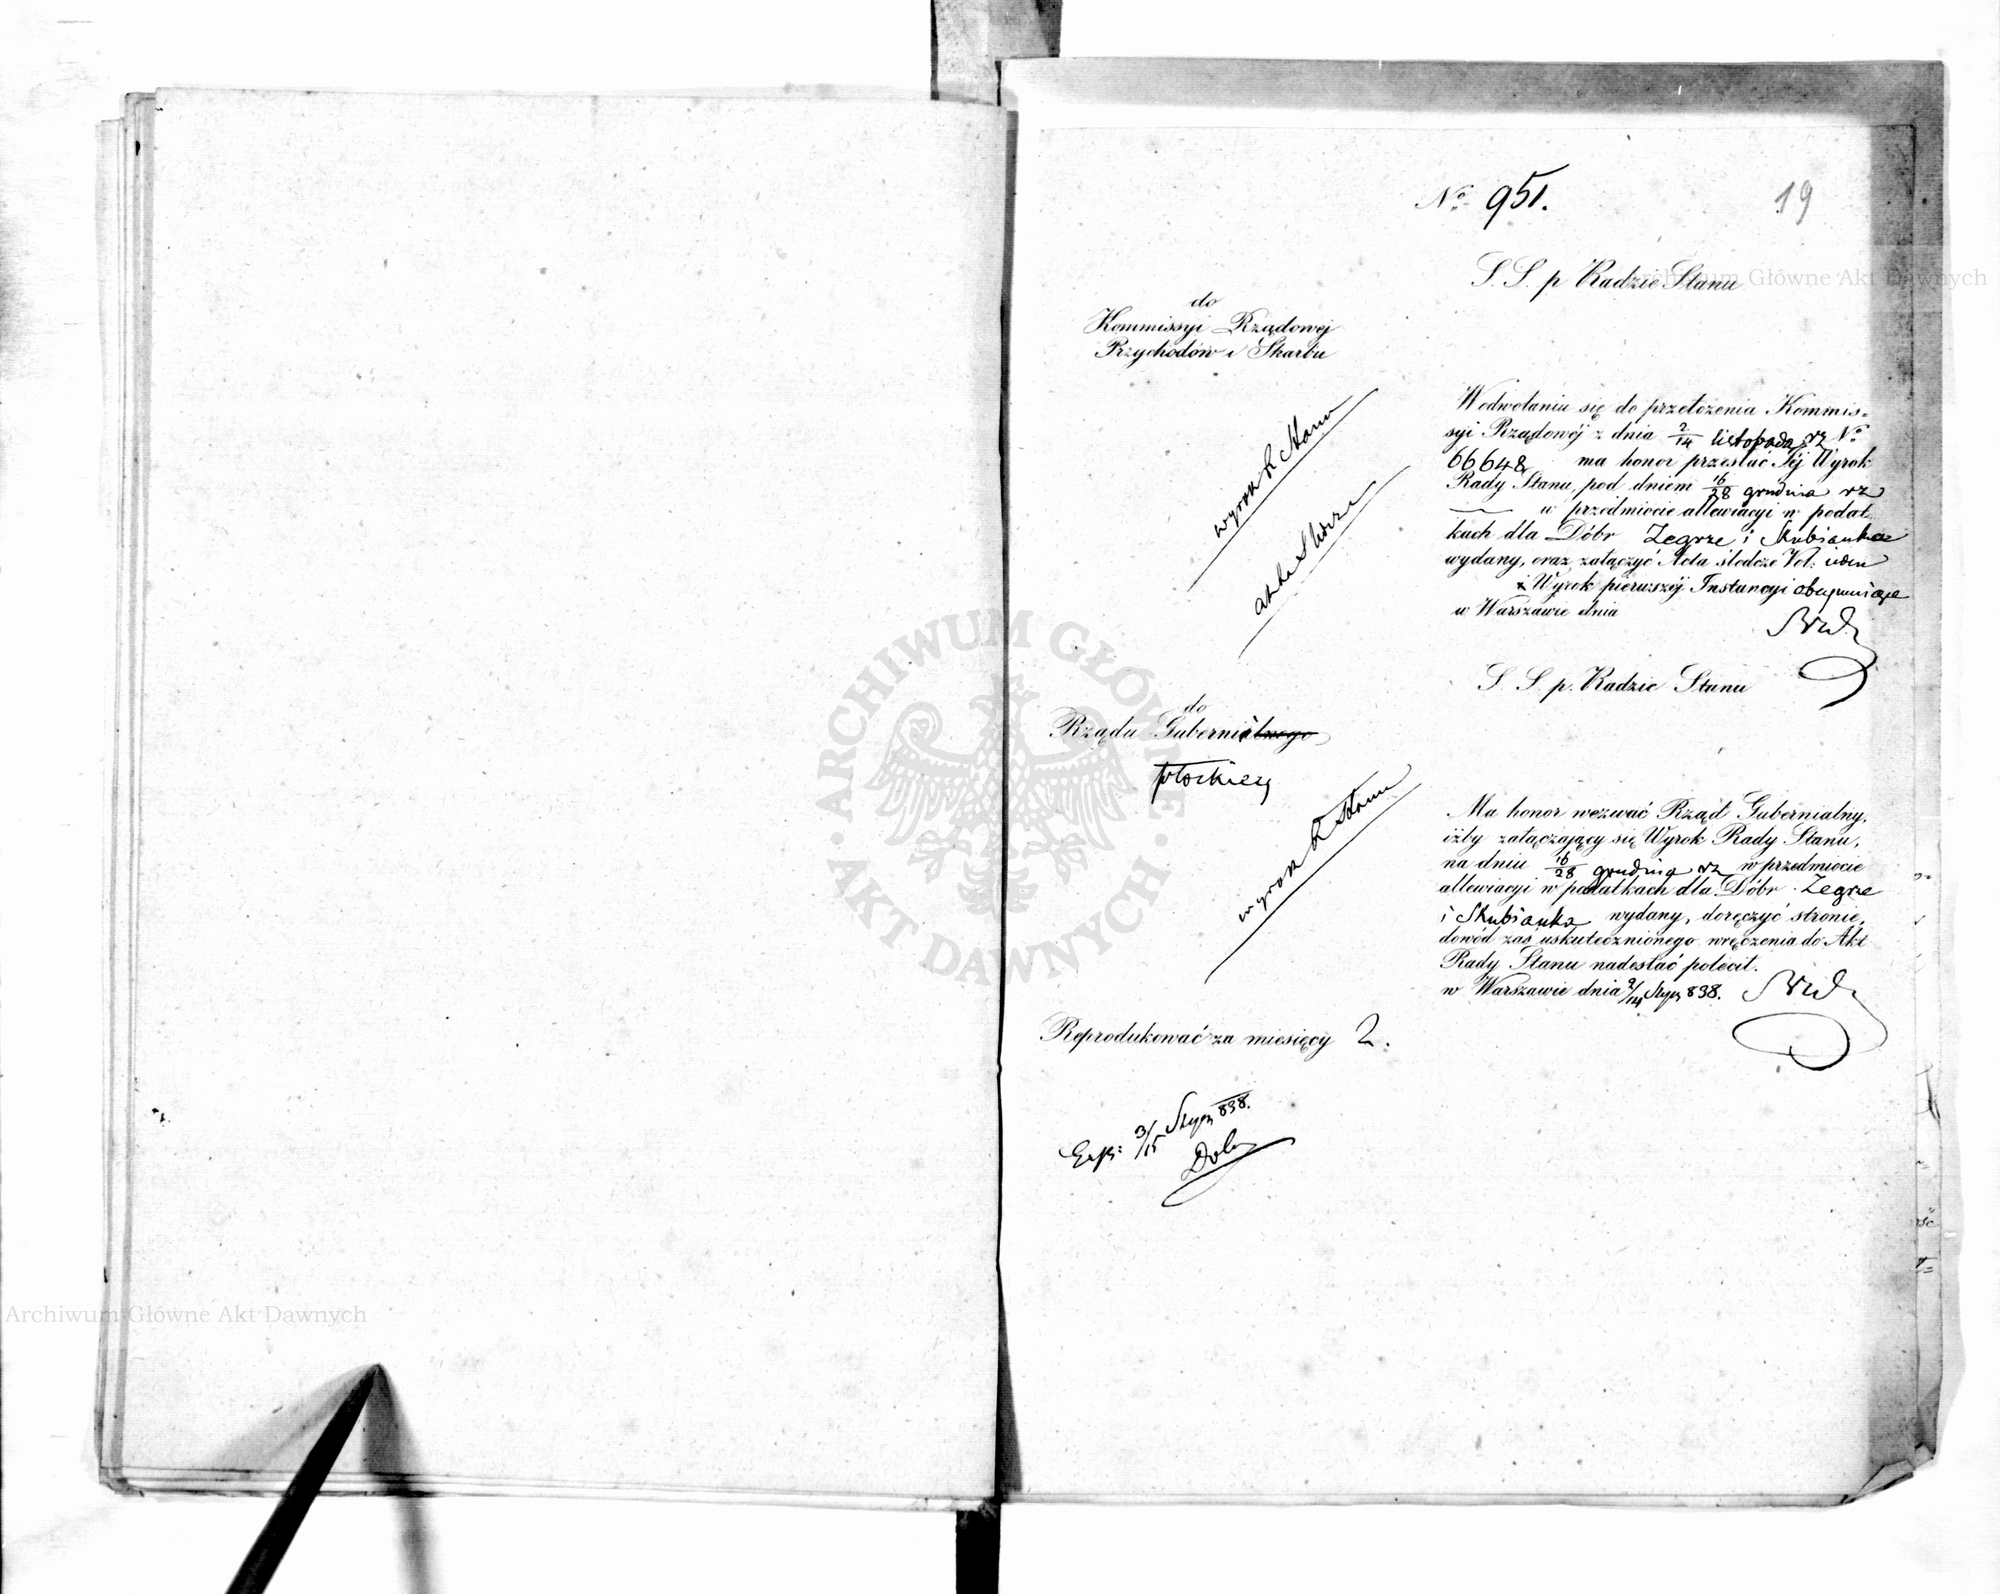 Nº 951.
19
S. S. p Radzie Stanu
do
Kommissyi Rządowej
Przychodów i Skarbu
W odwołaniu się do przełożenia Kommis-
syi Rządowéj z dnia 2/14 listopada rz Nº
66648 ma honor przesłać Jéj Wyrok
Rady Stanu, pod dniem 16/28 grudnia rz
w przedmiocie allewiacyi w podat-
kach dla Dóbr Zegrze i Skubianka
wydany, oraz załączyć Acta śledcze Vol: jeden
i Wyrok pierwszéj Instancyi obejmujące
w Warszawie dnia
wyrok R Stanu
S. S. p. Radzie Stanu
do
Rządu Gubernialnego
płockiego
Ma honor wezwać Rząd Gubernialny,
iżby załączający się Wyrok Rady Stanu,
na dniu 16/28 grudnia rz w przedmiocie
allewiacyi w podatkach dla Dóbr Zegrze
i Skubianka wydany, doręczyć stronie,
dowód zaś uskutecznionego wręczenia do Akt
Rady Stanu nadesłać polecił.
w Warszawie dnia 2/14 Stycz 838.
wyrok R Stanu
Reprodukować za miesięcy 2.
Exp: 3/15 Stycz 838.
Archiwum Główne Akt Dawnych
Archiwum Główne Akt Dawnych
ARCHIWUM GŁÓWNE · AKT DAWNYCH ·